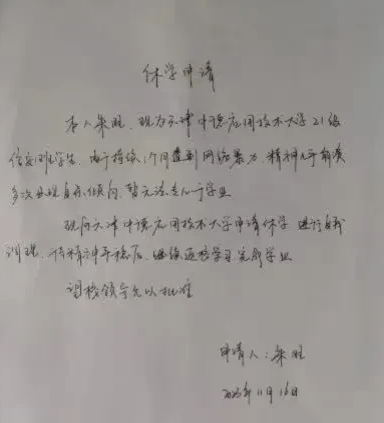 休学申请
本人朱旺,现为天津中德应用技术大学21级
信安班学生,由于持续1个月遭到网络暴力,精神几乎崩溃
多次出现自杀倾向,暂无法专心于学业
现向天津中德应用技术大学申请休学,进行自我
调理,待精神平稳后,继续返校学习,完成学业
请校领导允以批准
申请人:朱旺
11月16日